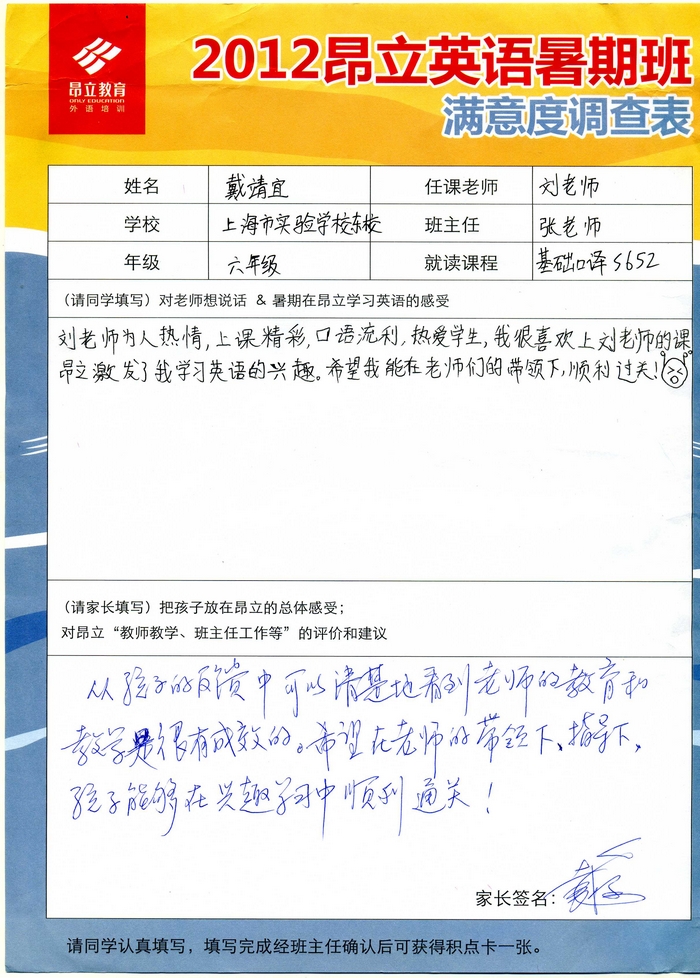 昂立教育
ONLY EDUCATION
外语培训
2012昂立英语暑期班
满意度调查表
姓名 戴靖宜 任课老师 刘老师
学校 上海市实验学校东校 班主任 张老师
年级 六年级 就读课程 基础口译5652
（请同学填写）对老师想说话 & 暑期在昂立学习英语的感受
刘老师为人热情，上课精彩，口语流利，热爱学生，我很喜欢上刘老师的课
昂立激发了我学习英语的兴趣。希望我能在老师们的带领下，顺利过关！
（请家长填写）把孩子放在昂立的总体感受；
对昂立“教师教学、班主任工作等”的评价和建议
从孩子的反馈中可以清楚地看到老师的教育和
教学是很有成效的。希望在老师的带领下、指导下，
孩子能够在兴趣学习中顺利通关！
家长签名：
请同学认真填写，填写完成经班主任确认后可获得积点卡一张。